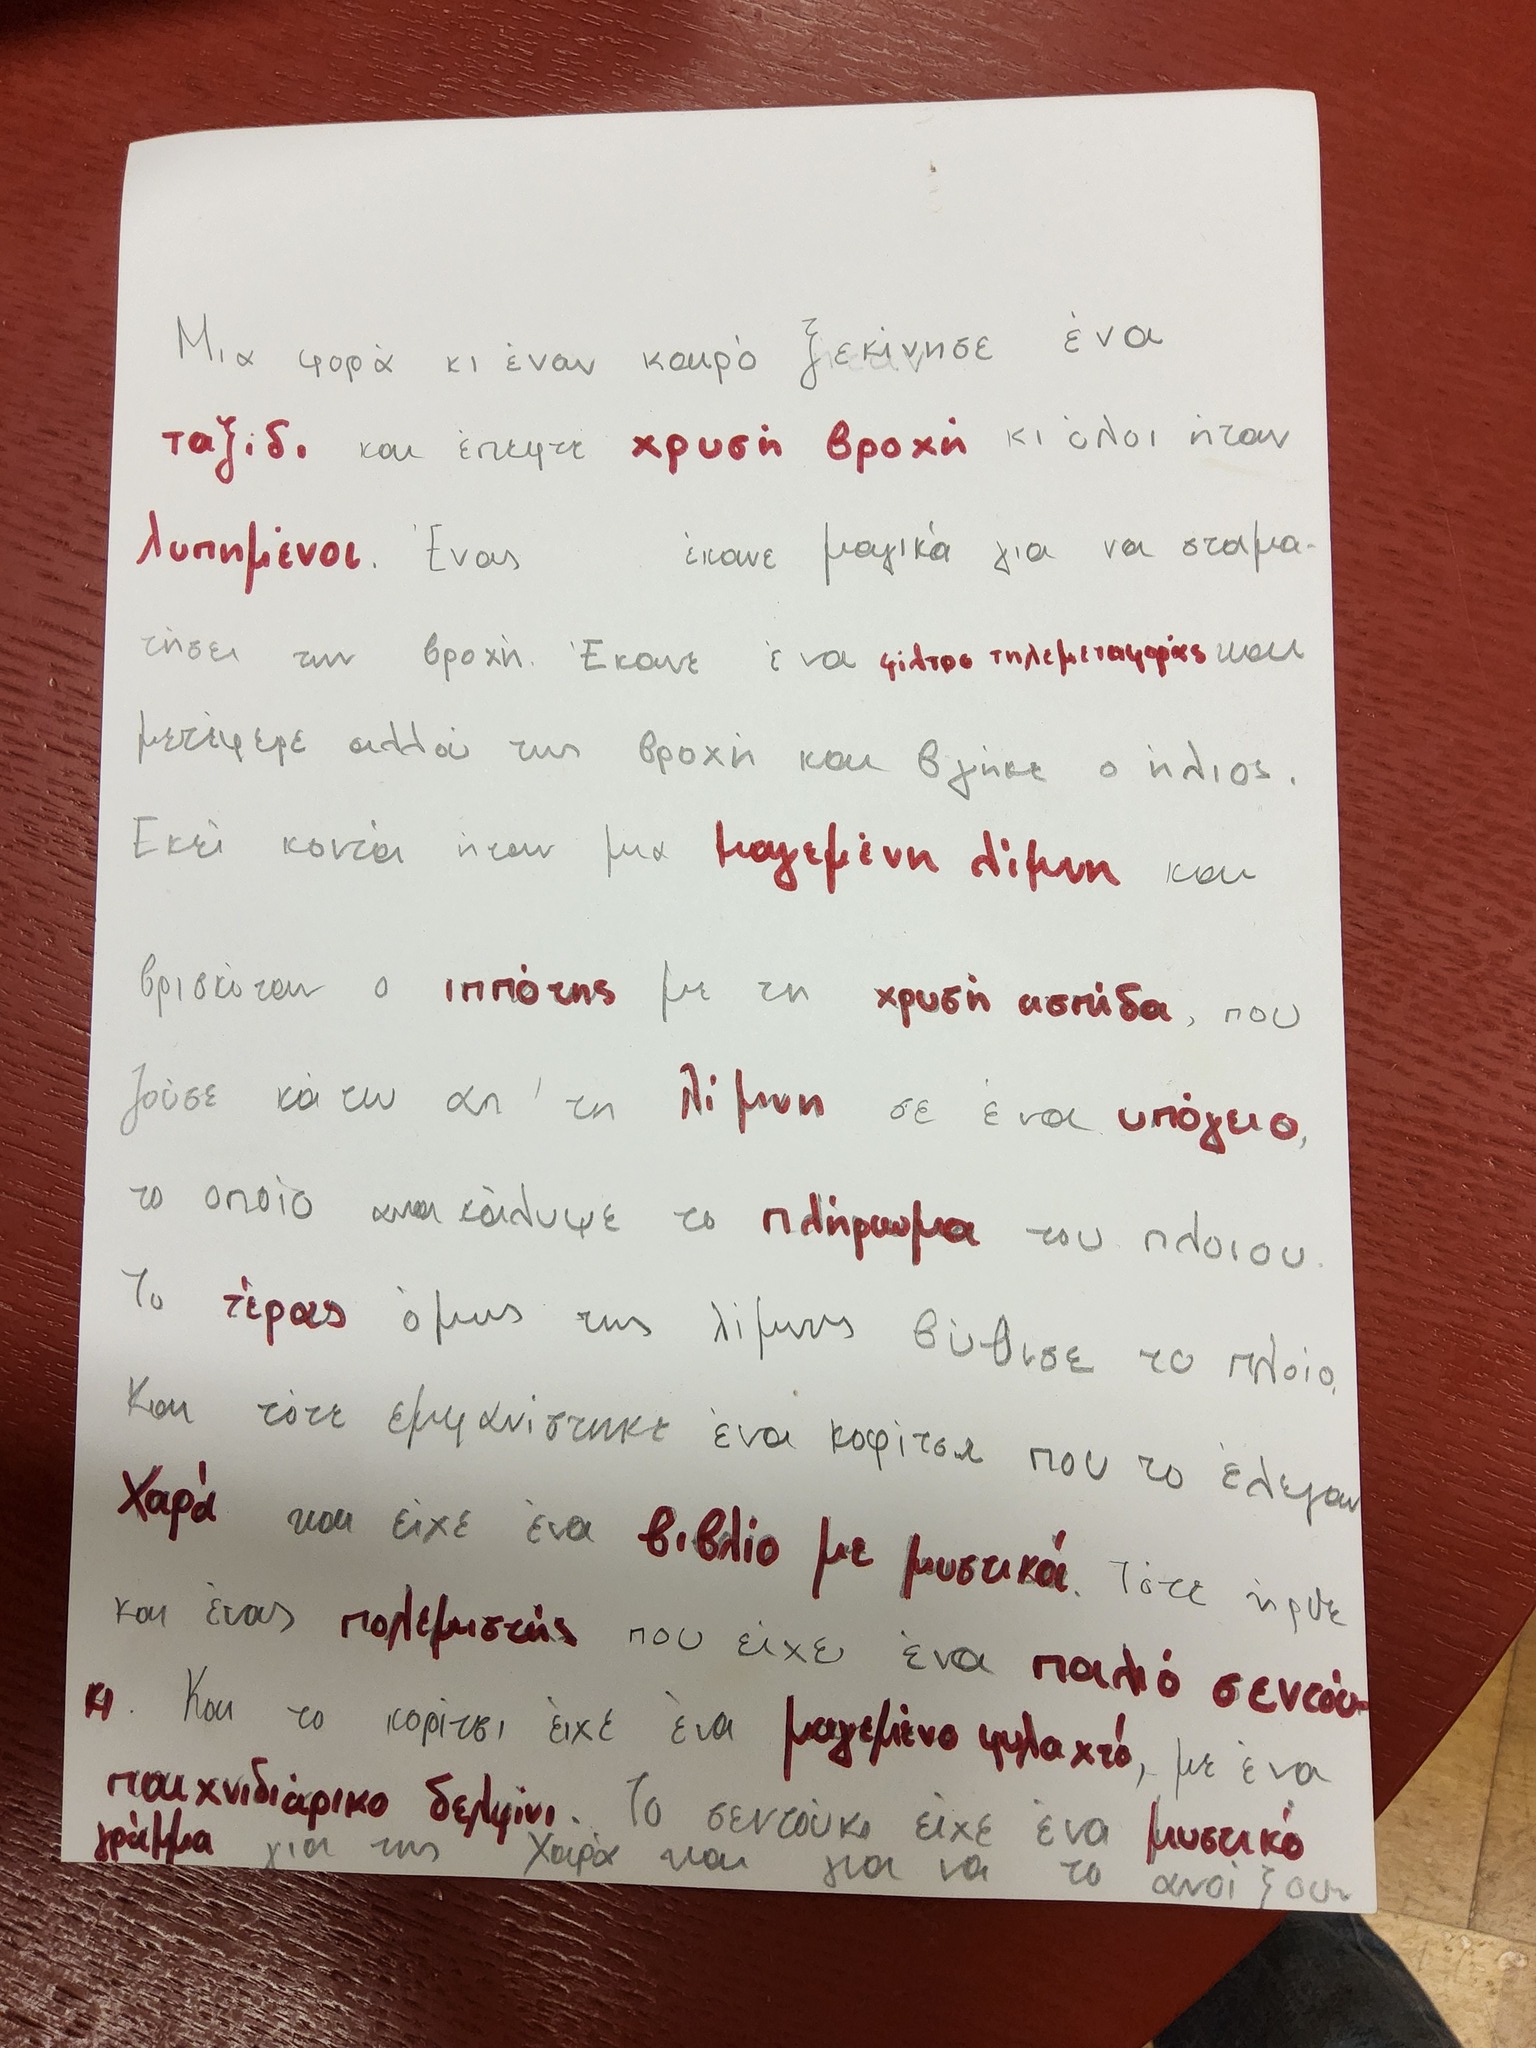 Μια φορά κι έναν καιρό ξεκίνησε ένα
ταξίδι και έπεφτε χρυσή βροχή κι όλοι ήταν
λυπημένοι. Ένας έκανε μαγικά για να σταμα-
τήσει την βροχή. Έκανε ένα φίλτρο τηλεμεταφοράς και
μετέφερε αλλού της βροχή και βγήκε ο ήλιος.
Εκεί κοντά ήταν μια μαγεμένη λίμνη και
βρισκόταν ο ιππότης με τη χρυσή ασπίδα, που
ζούσε κάτω απ' τη λίμνη σε ένα υπόγειο,
το οποίο ανακάλυψε το πλήρωμα του πλοιου.
Το τέρας όμως της λίμνης βύθισε το πλοίο.
Και τότε εμφανίστηκε ένα κορίτσι που το έλεγαν
Χαρά και είχε ένα βιβλίο με μυστικά. Τότε ήρθε
και ένας πολεμιστής που είχε ένα παλιό σεντού-
κι. Και το κορίτσι είχε ένα μαγεμένο φυλαχτό, με ένα
παιχνιδιάρικο δελφίνι. Το σεντούκι είχε ένα μυστικό
γράμμα για της Χαρά και για να το ανοίξουν